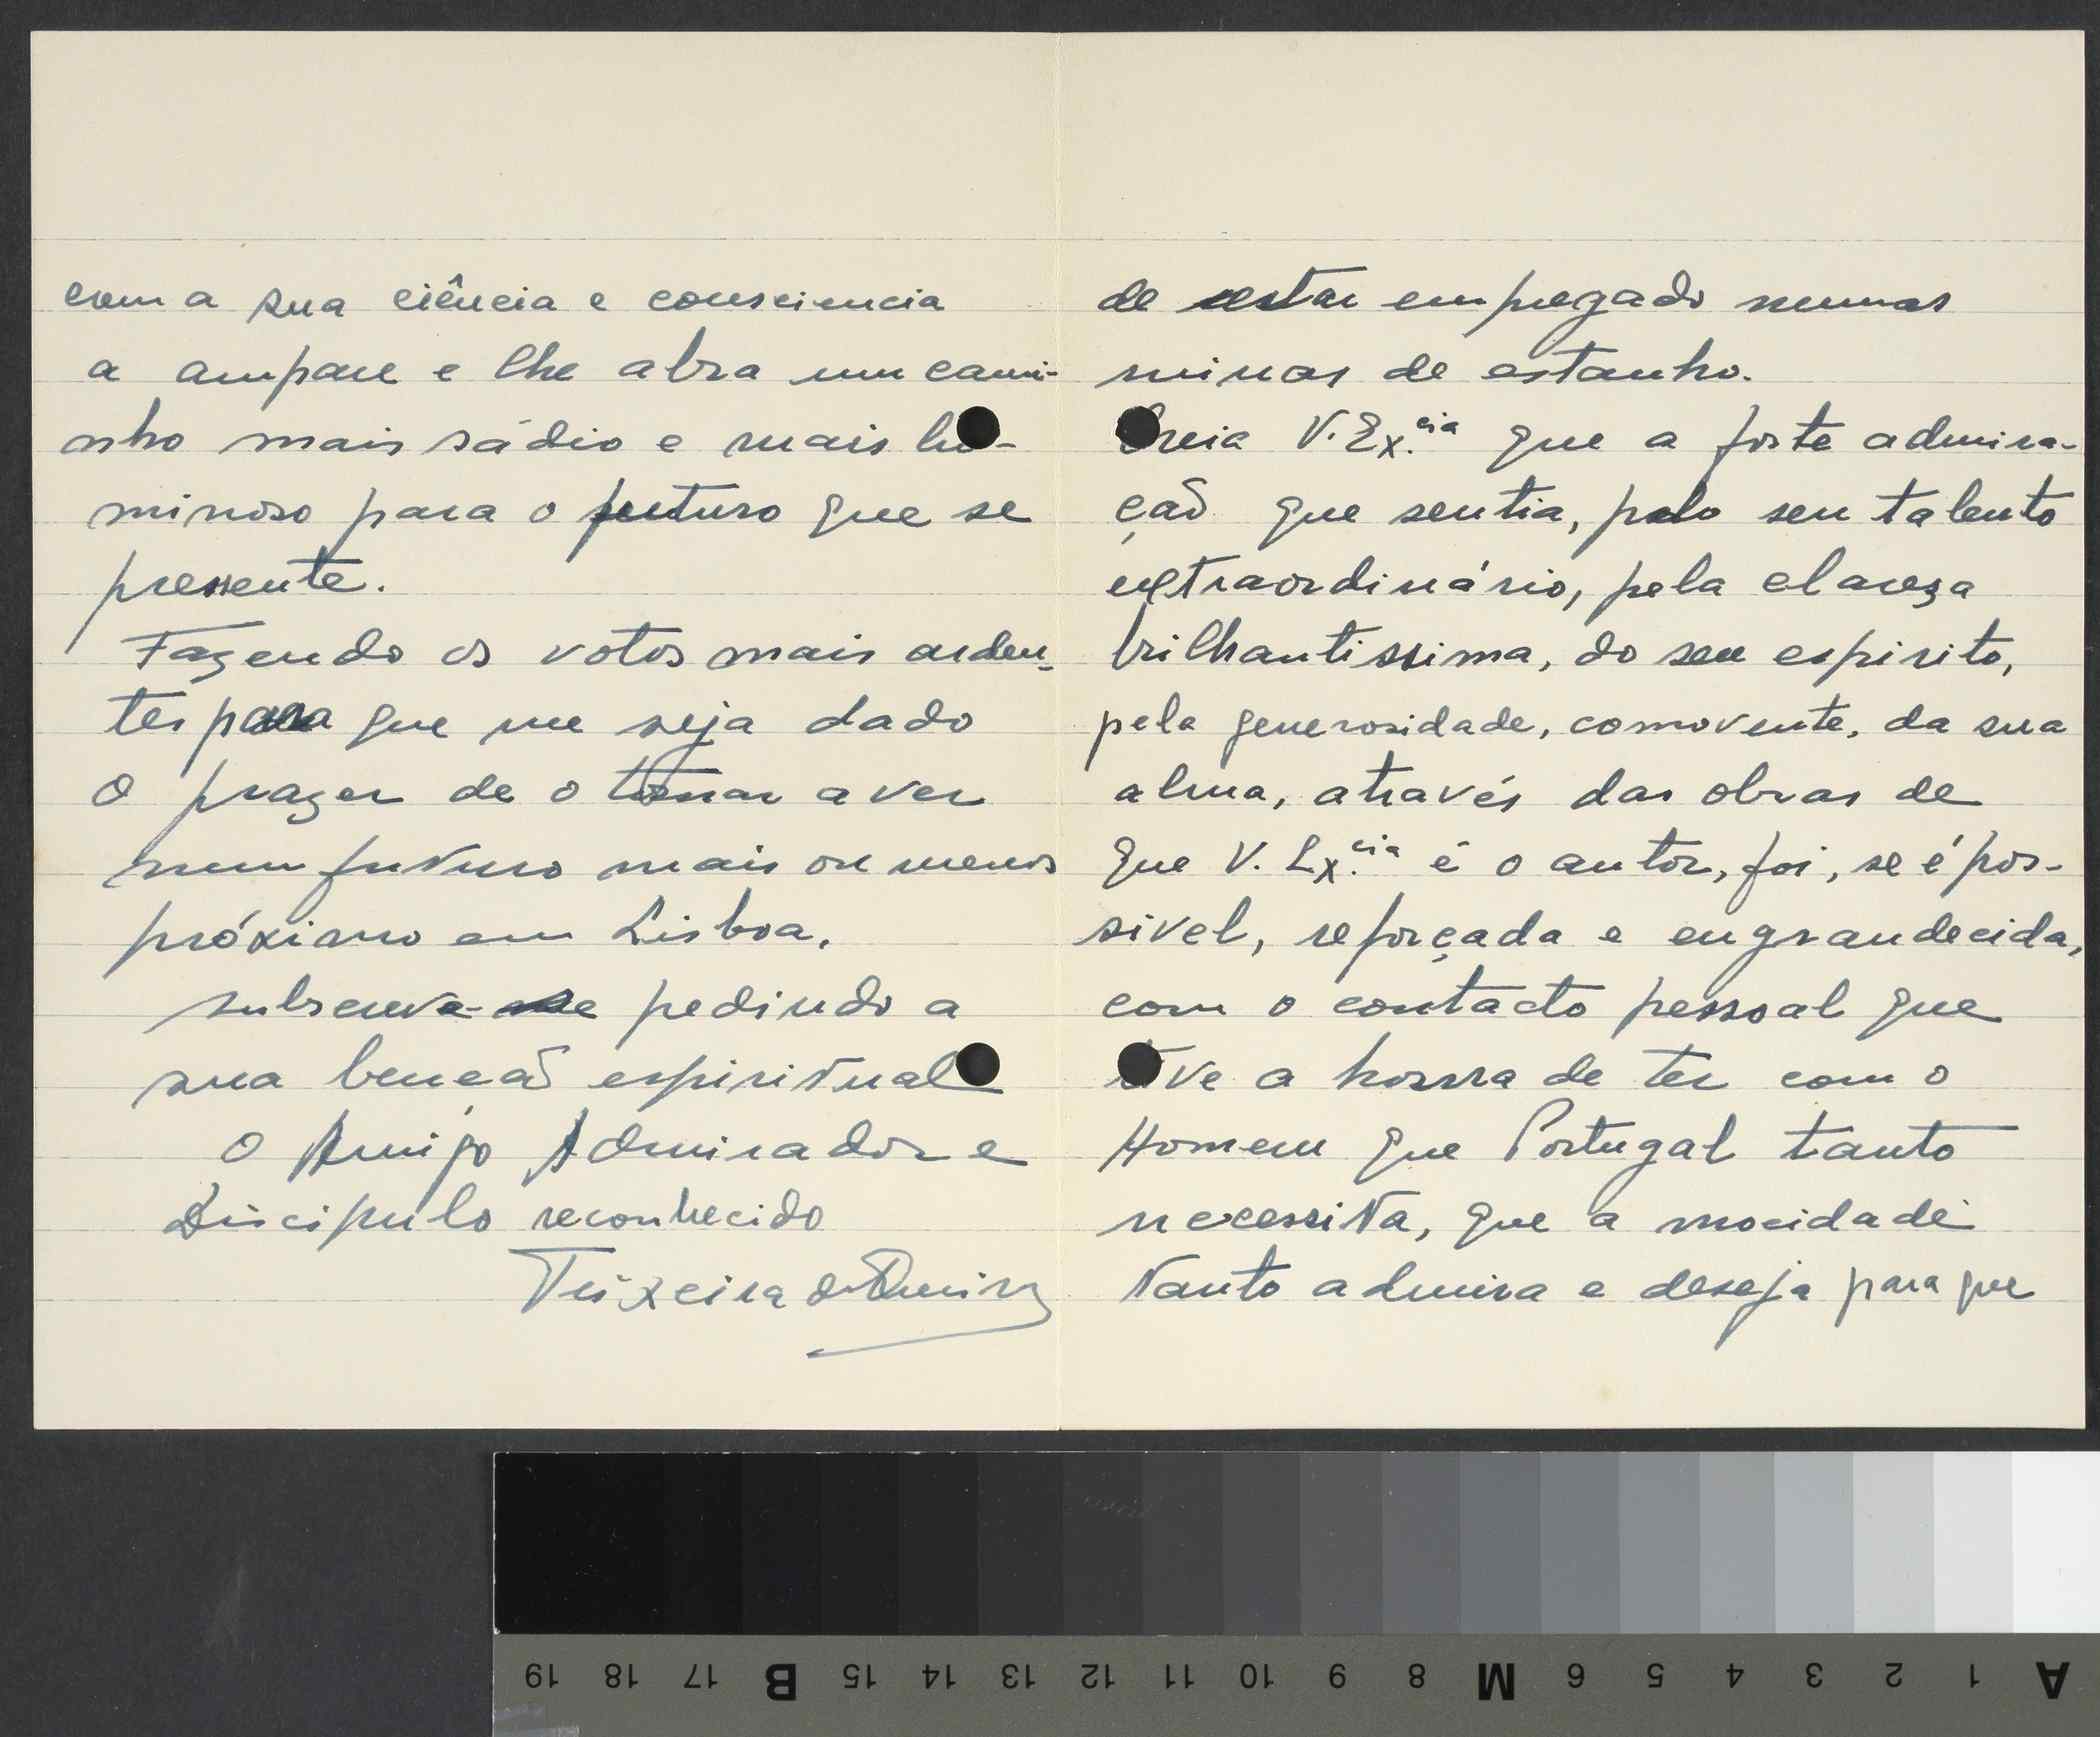 de estar empregado numas
minas de estanho.
Creia V. Ex.cia que a forte admira-
ção que sentia, pelo seu talento
extraordinário, pela clareza
brilhantissima, do seu espirito,
pela generosidade, comovente, da sua
alma, através das obras de
que V. Ex.cia é o autor, foi, se é pos-
sivel, reforçada e engrandecida,
com o contacto pessoal que
tive a honra de ter com o
Homem que Portugal tanto
necessita, que a mocidade
tanto admira e deseja para que
com a sua ciência e consciencia
a ampare e lhe abra um cami-
nho mais sádio e mais lu-
minoso para o futuro que se
pressente.
Fazendo os votos mais arden-
tes para que me seja dado
o prazer de o tornar a ver
num futuro mais ou menos
próximo em Lisboa,
subscreve-se pedindo a
sua benção espiritual
o Amigo Admirador e
Discipulo reconhecido
Teixeira de Queiroz
A 1 2 3 4 5 6 M 8 9 10 11 12 13 14 15 B 17 18 19